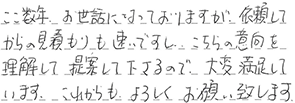 ここ数年 お世話になっておりますが、依頼して
からの見積もりも速いですし、こちらの意向を
理解して 提案して下さるので、大変満足して
います。これからも よろしくお願い致します